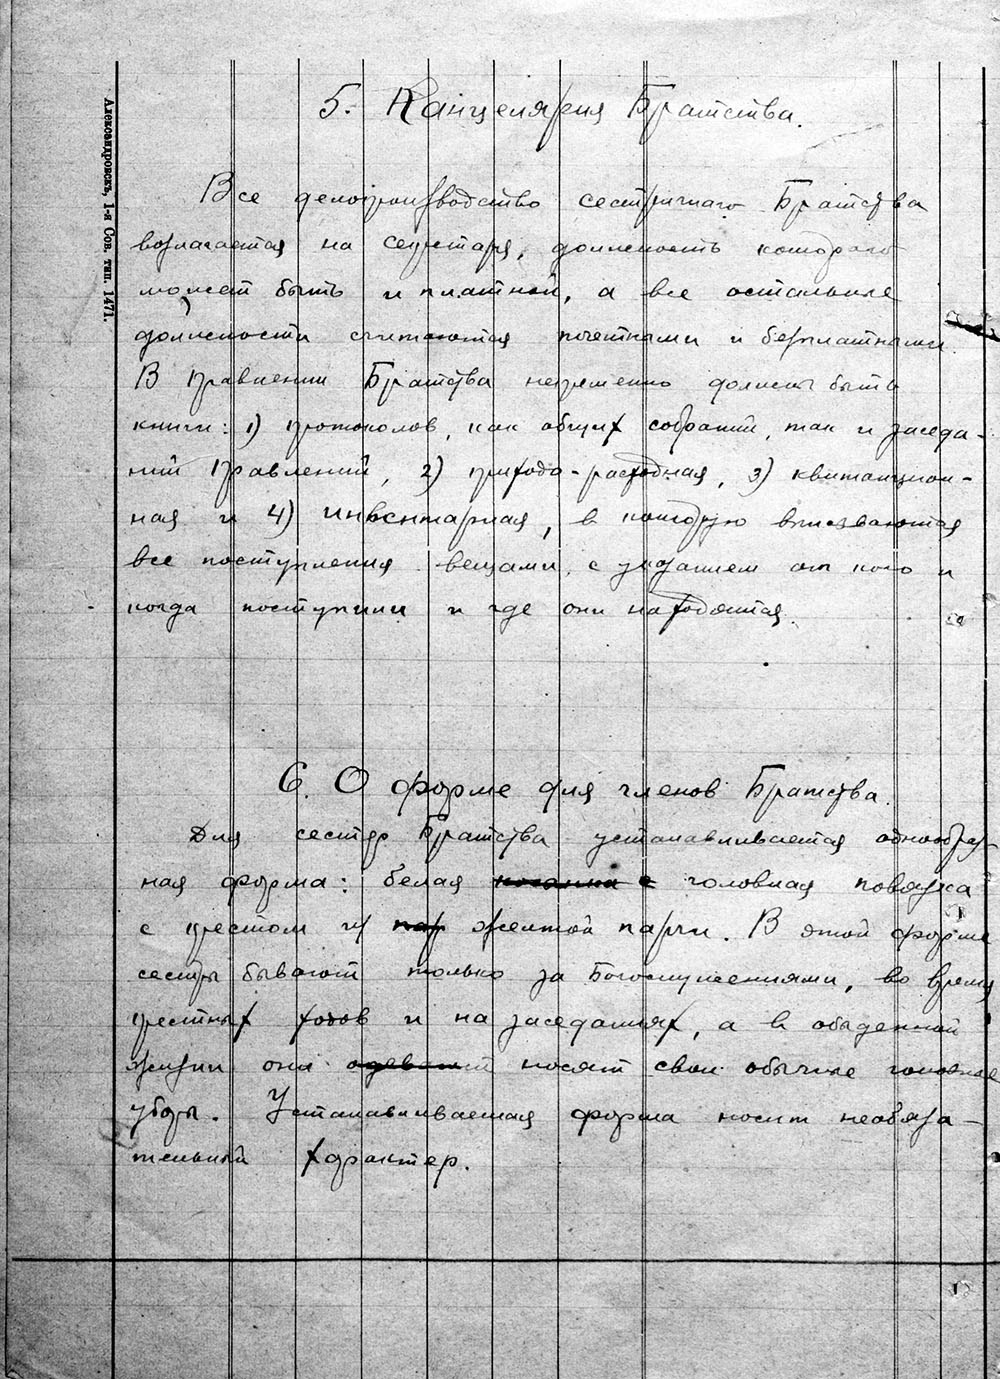 5. Канцелярия Братства.
Все делопроизводство сестричнаго Братства
возлагается на секретаря, должность котораго
может быть и платной, а все остальные
должности считаются почетными и безплатными.
В правлении Братства непременно должны быть
книги: 1) протоколов, как общих собраний, так и заседа-
ний правлений, 2) приходо-расходная, 3) квитанцион-
ная и 4) инвентарная, в которую вписываются
все поступления вещами, с указанием от кого и
когда поступили и где они находятся.
6. О форме для членов Братства.
Для сестер Братства устанавливается однообраз-
ная форма: белая косынка с головная повязка
с крестом из пар желтой парчи. В этой форме
сестры бывают только за Богослужениями, во время
крестных ходов и на заседаниях, а в обыденной
жизни они одевают носят свои обычные головные
уборы. Устанавливаемая форма носит необяза-
тельный характер.
Александровскъ, 1-я Сов. тип. 1471.